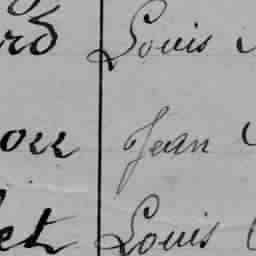 rd Louis
ou Jean
et Louis